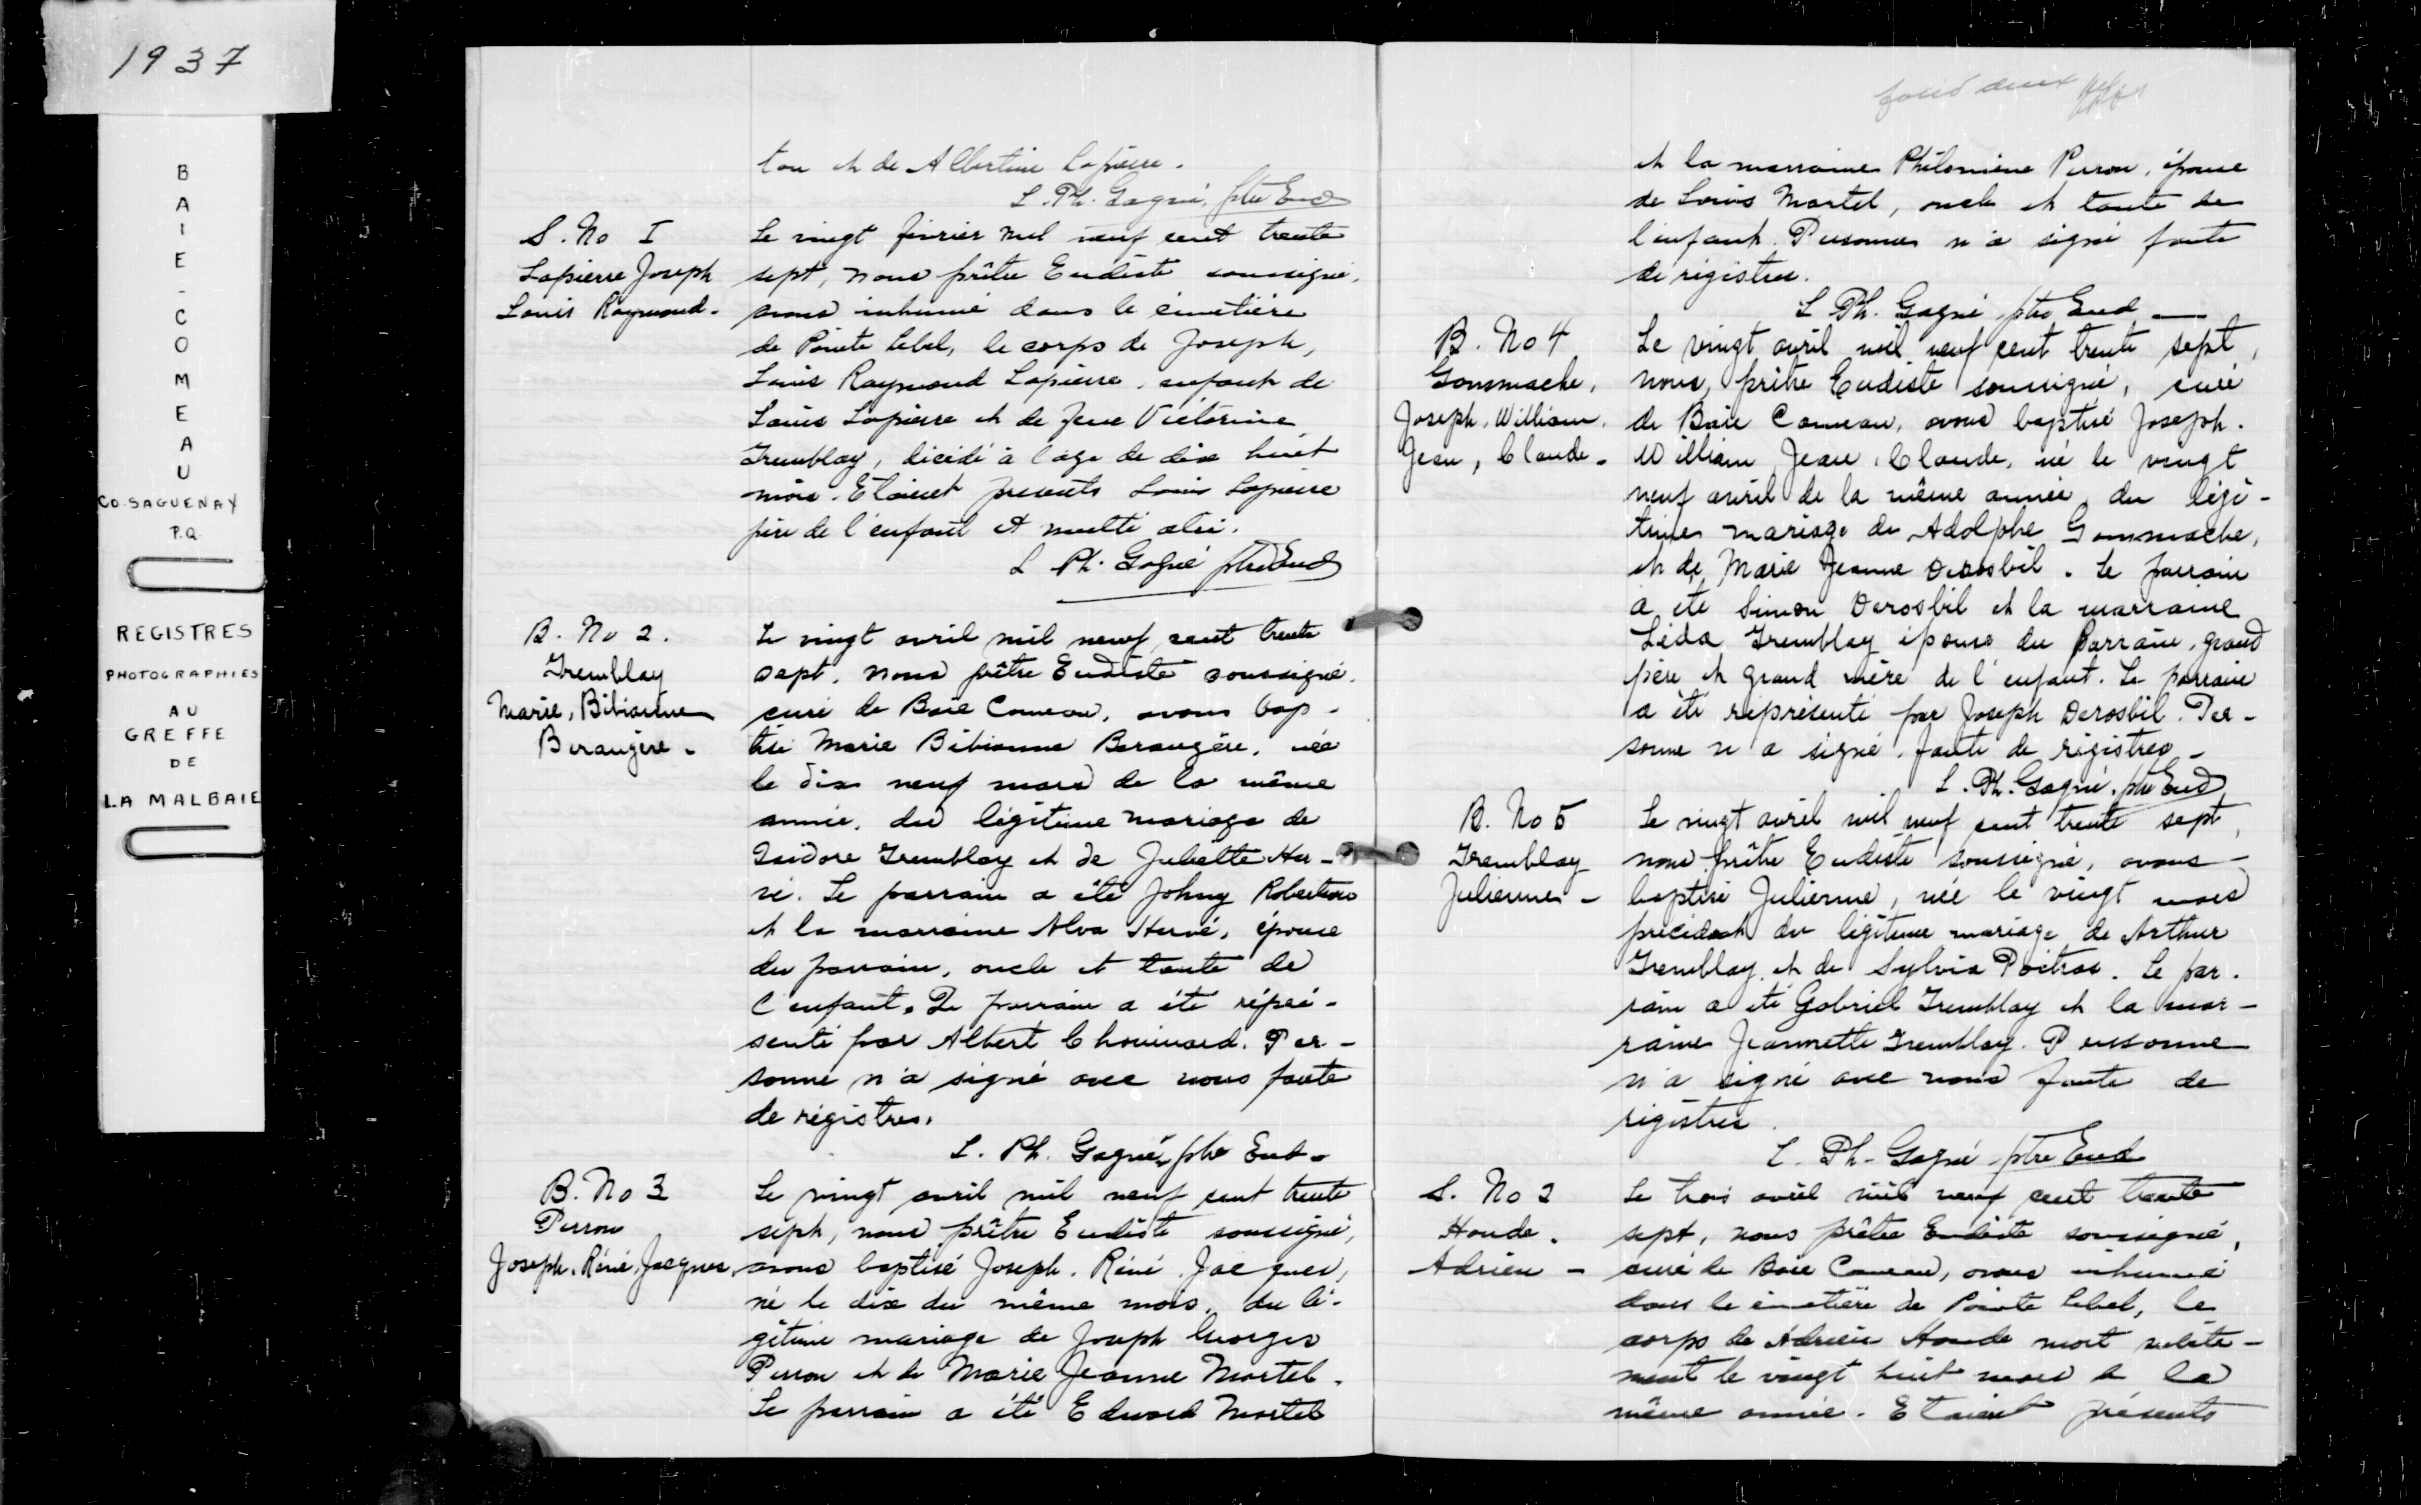 1937
BAIE-COMEAU
CO. SAGUENAY
P.Q.
REGISTRES
PHOTOGRAPHIES
AU
GREFFE
DE
LA MALBAIE
ton et de Albertine Lapierre.
L. Ph. Gagné, ptre Eud
S. No I
Lapierre Joseph
Louis Raymond.
Le vingt février mil neuf cent trente
sept, nous prêtre Eudiste soussigné,
avons inhumé dans le cimetière
de Pointe Lebel, le corps de Joseph,
Louis Raymond Lapierre, enfant de
Louis Lapierre et de feue Victorine
Tremblay, décédé à l'age de dix huit
mois. Etaient presents Louis Lapierre
père de l'enfant et multi alii.
L Ph. Gagné ptre Eud
B. No 2.
Tremblay
Marie, Bibianne
Berangère.
Le vingt avril mil neuf cent trente
sept, nous prêtre Eudiste soussigné,
curé de Baie Comeau, avons bap-
tisé Marie Bibianne Berangère, née
le dix neuf mars de la même
année, du légitime mariage de
Isidore Tremblay et de Juliette Her-
vé. Le parrain a été Johny Robertson
et la marraine Alva Hervé, épouse
du parrain, oncle et tante de
l'enfant. Le parrain a été répré-
senté par Albert Chouinard. Per-
sonne n'a signé avec nous faute
de régistres.
L. Ph. Gagné, ptre Eud.
B. No 3
Perron
Joseph, Réné, Jacques,
Le vingt avril mil neuf cent trente
sept, nous prêtre Eudiste soussigné,
avons baptisé Joseph. Réné. Jacques,
né le dix du même mois, du lé-
gitime mariage de Joseph Georges
Perron et de Marie Jeanne Martel.
Le parrain a été Edward Martel
et la marraine Philomène Perron, épouse
de Louis Martel, oncle et tante de
l'enfant. Personne n'a signé faute
de régistres.
L Ph. Gagné ptre Eud
B. No 4
Gammache,
Joseph, William,
Jean, Claude.
Le vingt avril mil neuf cent trente sept,
nous, prêtre Eudiste soussigné, curé
de Baie Comeau, avons baptisé Joseph.
William, Jean, Claude, né le vingt
neuf avril de la même année, du légi-
time mariage de Adolphe Gammache,
et de Marie Jeanne Derosbil. Le parrain
a été Simon Derosbil et la marraine
Léda Tremblay épouse du Parrain, grand
père et grand mère de l'enfant. Le parrain
a été réprésenté par Joseph Derosbil. Per-
sonne n'a signé faute de régistres.
L. Ph. Gagné, ptre Eud
B. No 5
Tremblay
Julienne -
Le vingt avril mil neuf cent trente sept,
nous prêtre Eudiste soussigné, avons
baptisé Julienne, née le vingt mars
précédent du légitime mariage de Arthur
Tremblay et de Sylvia Poitras. Le par-
rain a été Gabriel Tremblay et la mar-
raine Jeannette Tremblay. Personne
n'a signé avec nous faute de
régistres.
L. Ph. Gagné ptre Eud
S. No 2
Houde.
Adrien -
Le trois avril mil neuf cent trente
sept, nous prêtre Eudiste soussigné,
curé de Baie Comeau, avons inhumé
dans le cimetière de Pointe Lebel, le
corps de Adrien Houde mort subite-
ment le vingt huit mars de la
même année. Etaient présents